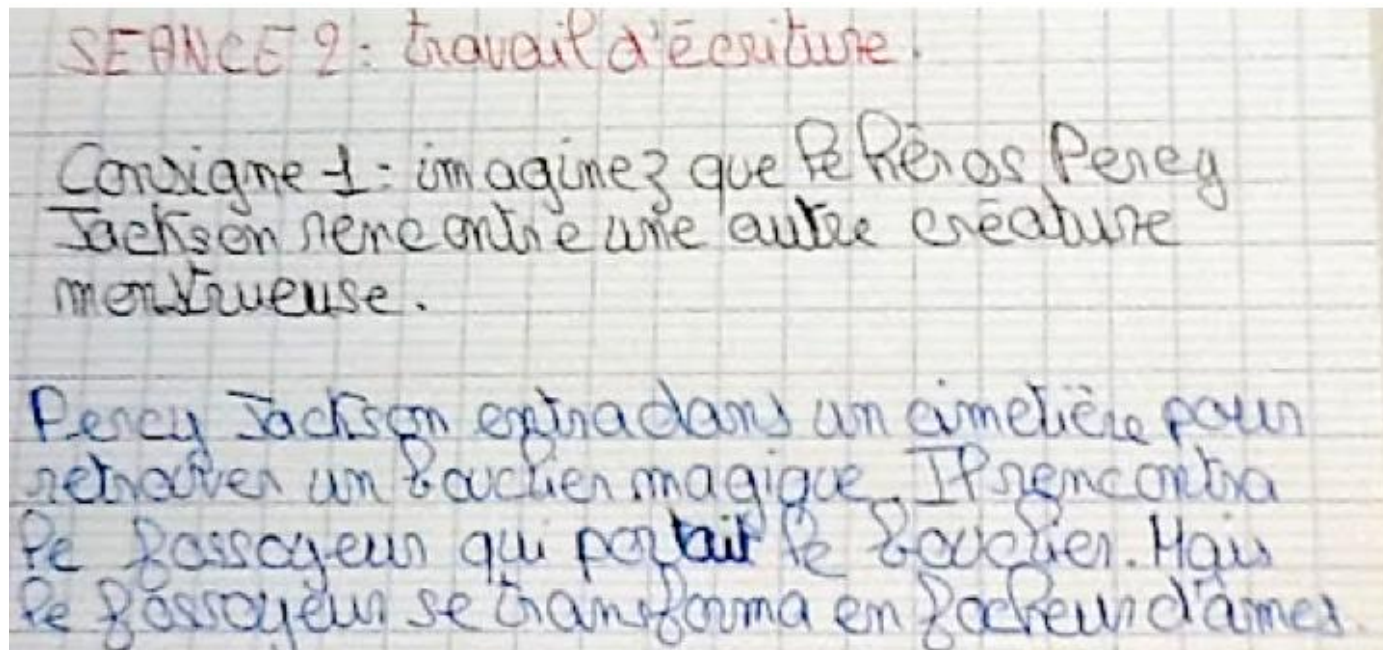 SEANCE 2 : travail d'écriture.
Consigne 1 : imaginez que le héros Percy
Jackson rencontre une autre créature
monstrueuse.
Percy Jackson entra dans un cimetière pour
retrouver un bouclier magique. Il rencontra
le fossoyeur qui portait le bouclier. Mais
le fossoyeur se transforma en faucheur d'âmes.